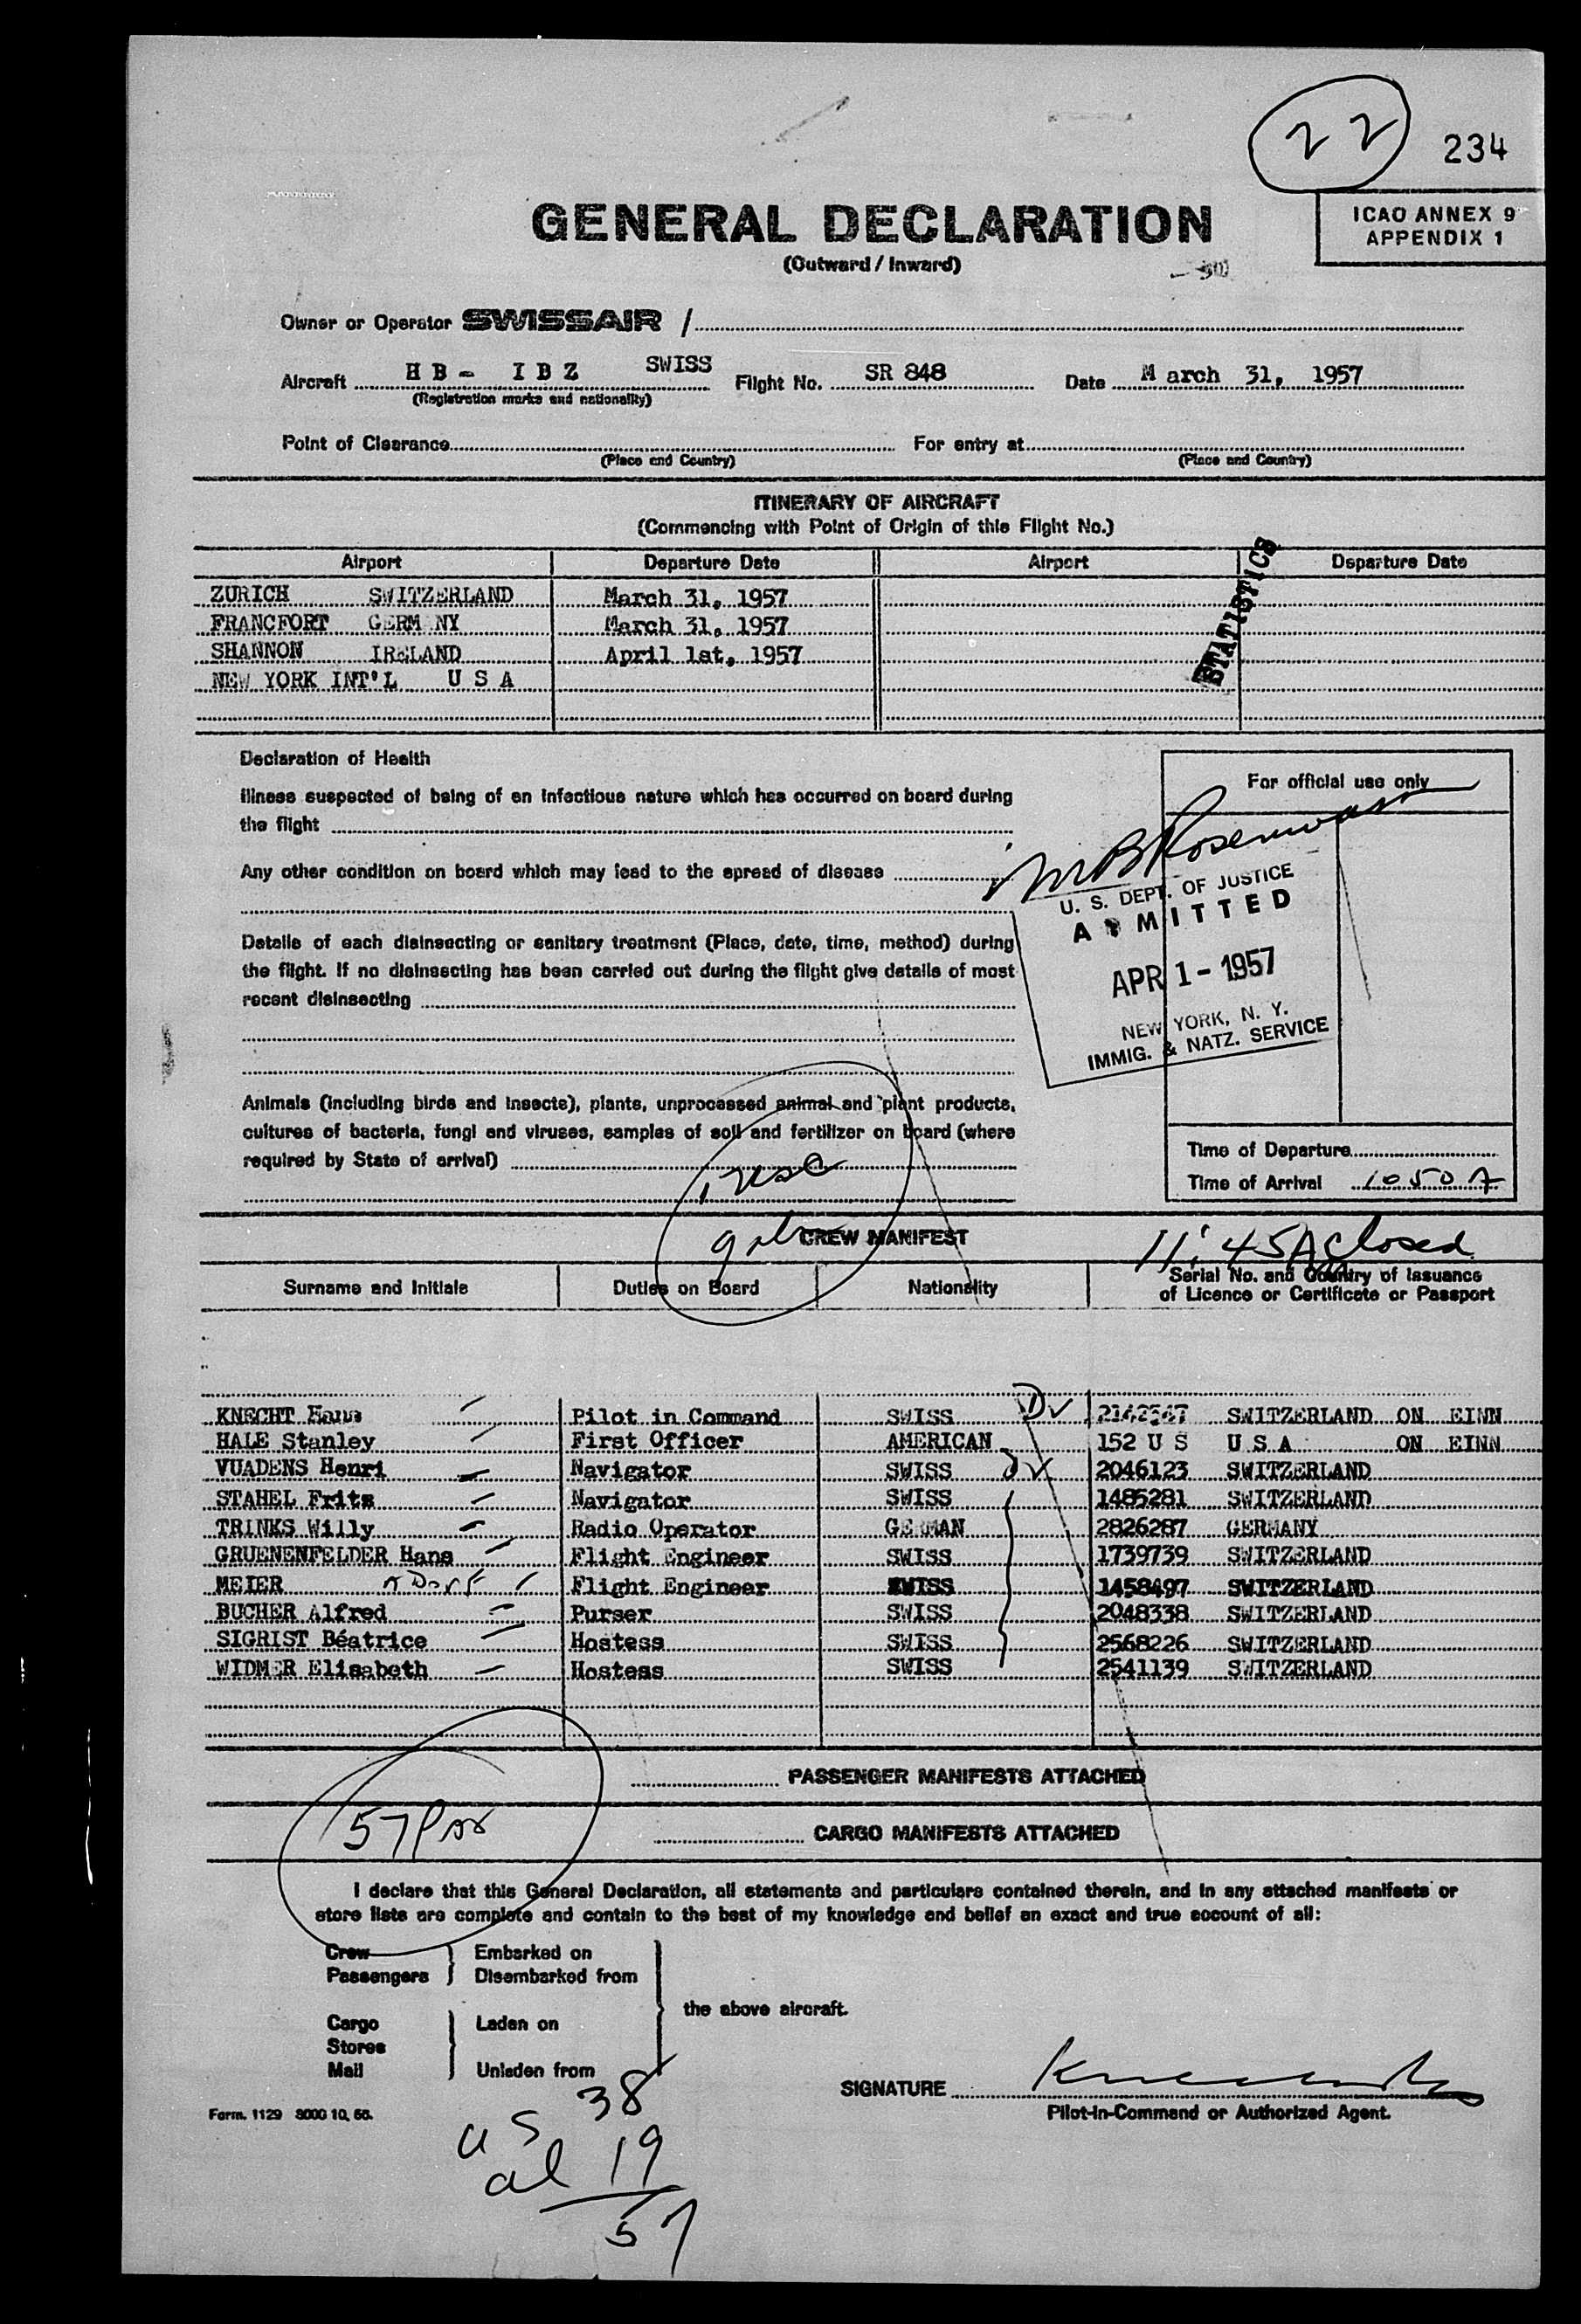 22 234
GENERAL DECLARATION
ICAO ANNEX 9
APPENDIX 1
(Outward / Inward)
Owner or Operator SWISSAIR /
Aircraft HB- IBZ SWISS Flight No. SR 848 Date March 31, 1957
(Registration marks and nationality)
Point of Clearance For entry at
(Place and Country) (Place and Country)
ITINERARY OF AIRCRAFT
(Commencing with Point of Origin of this Flight No.)
Airport Departure Date Airport Departure Date
ZURICH SWITZERLAND March 31, 1957
FRANCFORT GERM NY March 31, 1957
SHANNON IRELAND April 1st, 1957
NEW YORK INT'L U S A
STATISTICS
Declaration of Health
Illness suspected of being of an infectious nature which has occurred on board during
the flight
Any other condition on board which may lead to the spread of disease
Details of each disinsecting or sanitary treatment (Place, date, time, method) during
the flight. If no disinsecting has been carried out during the flight give details of most
recent disinsecting
Animals (including birds and insects), plants, unprocessed animal and plant products,
cultures of bacteria, fungi and viruses, samples of soil and fertilizer on board (where
required by State of arrival)
For official use only
U. S. DEPT. OF JUSTICE
ADMITTED
APR 1 - 1957
NEW YORK, N. Y.
IMMIG. & NATZ. SERVICE
Time of Departure
Time of Arrival 1050 A
1 usc
9 al
CREW MANIFEST
11:45A closed
Surname and Initials Duties on Board Nationality Serial No. and Country of Issuance
of Licence or Certificate or Passport
KNECHT Hans Pilot in Command SWISS SWITZERLAND ON EINN
HALE Stanley First Officer AMERICAN 152 U S U S A ON EINN
VUADENS Henri Navigator SWISS 2046123 SWITZERLAND
STAHEL Fritz Navigator SWISS 1485281 SWITZERLAND
TRINKS Willy Radio Operator GERMAN 2826287 GERMANY
GRUENENFELDER Hans Flight Engineer SWISS 1739739 SWITZERLAND
MEIER Flight Engineer SWISS 1458497 SWITZERLAND
BUCHER Alfred Purser SWISS 2048338 SWITZERLAND
SIGRIST Béatrice Hostess SWISS 2568226 SWITZERLAND
WIDMER Elisabeth Hostess SWISS 2541139 SWITZERLAND
PASSENGER MANIFESTS ATTACHED
57 Pax
CARGO MANIFESTS ATTACHED
I declare that this General Declaration, all statements and particulars contained therein, and in any attached manifests or
store lists are complete and contain to the best of my knowledge and belief an exact and true account of all:
Crew Embarked on
Passengers Disembarked from
the above aircraft.
Cargo Laden on
Stores
Mail Unladen from
SIGNATURE
Pilot-in-Command or Authorized Agent.
Form. 1129 8000 10. 56.
us 38
al 19
57